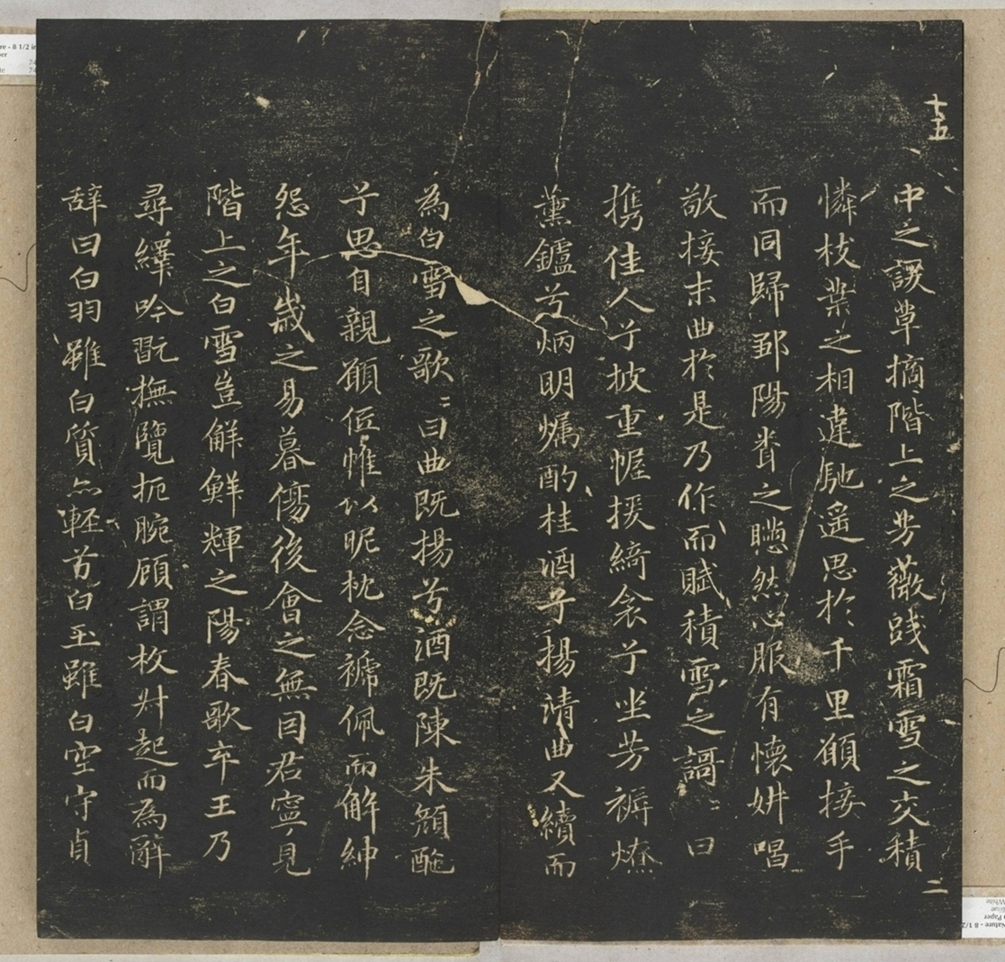 十五
中之諼草摘階上之芳薇踐霜雪之交積
憐枝葉之相違馳遥思於千里願接手
而同歸鄒陽聞之懣然心服有懷妍唱
敬接末曲於是乃作而賦積雪之謌〻曰
携佳人兮披重幄援綺衾兮坐芳褥燎
薰鑪兮炳明燭酌桂酒兮揚清曲又續而
為白雪之歌〻曰曲既揚兮酒既陳朱顔酡
兮思自親願低帷以昵枕念褫佩而解紳
怨年歲之易暮傷後會之無因君寧見
階上之白雪豈解鮮輝之陽春歌卒王乃
尋繹吟翫撫覽扼腕顧謂枚叔起而為辭
辭曰白羽雖白質亦輕兮白玉雖白空守貞
二